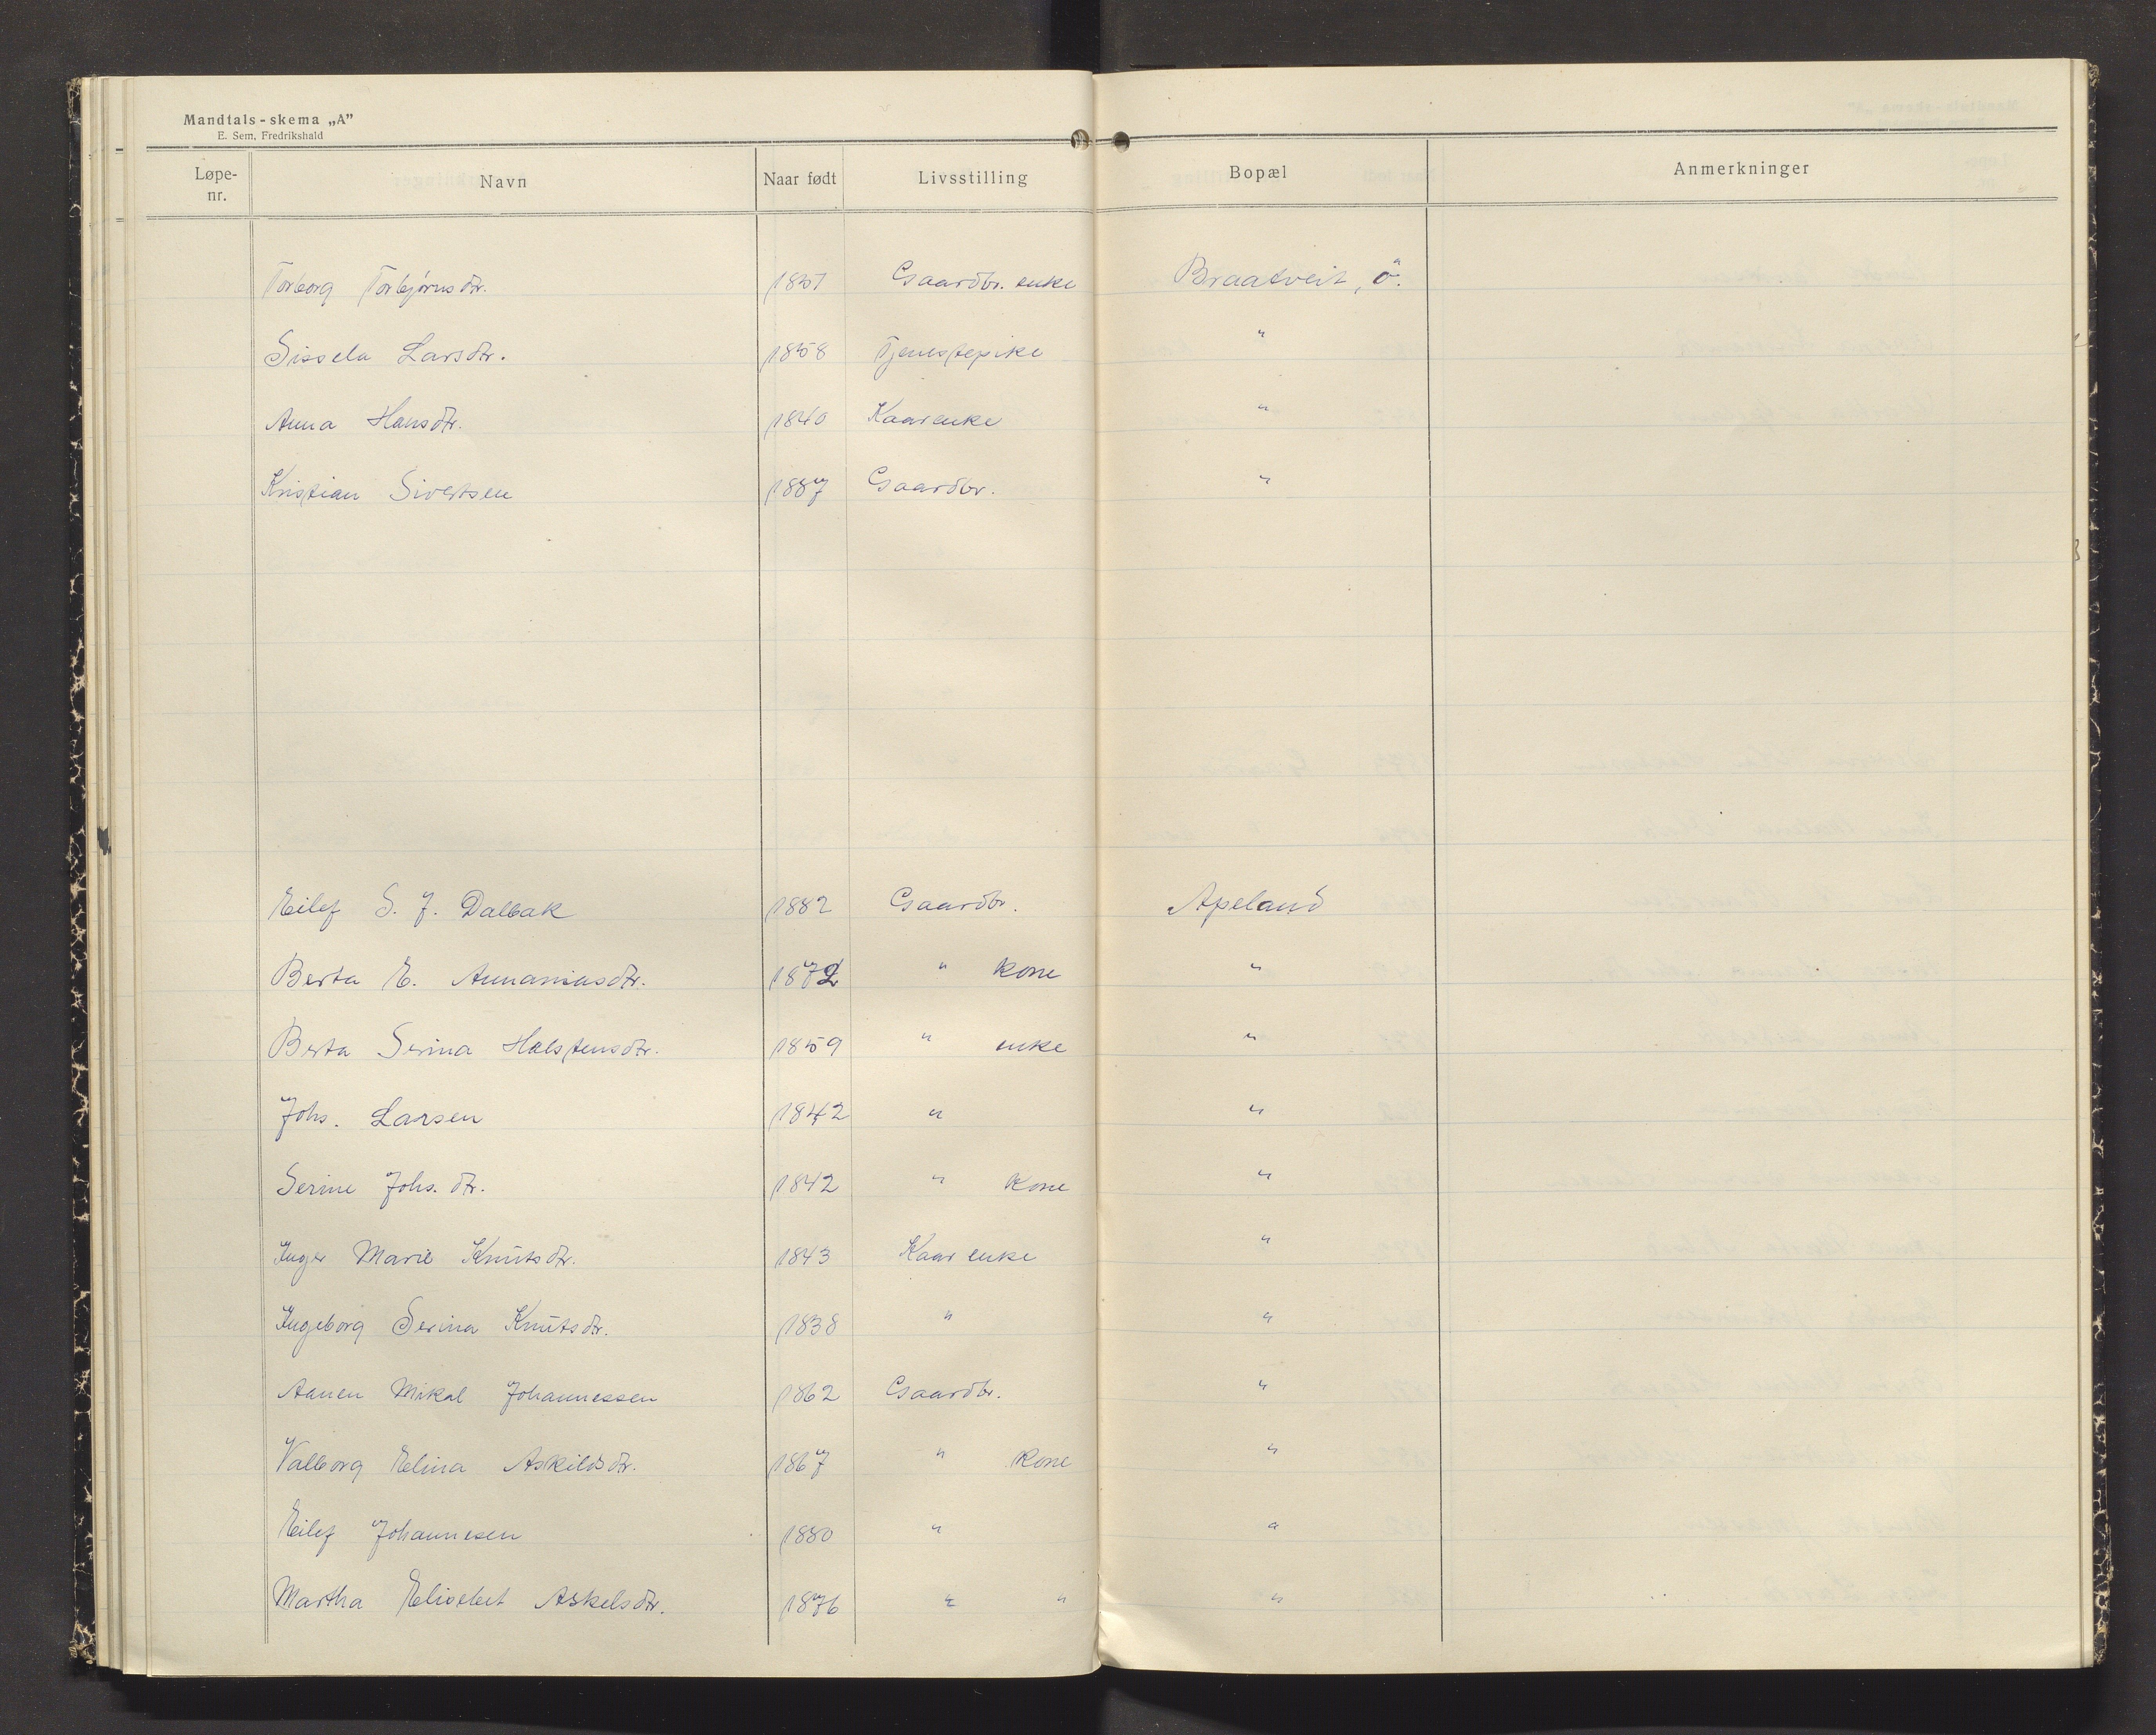 Mandtals-skema „A”
E. Sem, Fredrikshald
Løpe-nr. Navn Naar født Livsstilling Bopæl Anmerkninger
Torborg Torbjørnsdtr. 1857 Gaardbr. enke Braatveit, ö.
Sissela Larsdtr. 1858 Tjenestepike "
Anna Hansdtr. 1840 Kaarenke "
Kristian Sivertsen 1887 Gaardbr. "
Eilef S. J. Dalbak 1882 Gaardbr. Apeland
Berta E. Annaniasdtr. 1872 " kone "
Berta Serina Halstensdtr. 1859 " enke "
Johs. Larsen 1842 " "
Serine Johs. dtr. 1842 " Kone "
Inger Marie Knutsdtr. 1843 Kaarenke "
Ingeborg Serina Knutsdtr. 1838 " "
Aanen Mikal Johannessen 1862 Gaardbr. "
Valborg Elina Askildsdtr. 1867 " Kone "
Eilef Johannesen 1880 " "
Martha Elisebet Askelsdtr. 1876 " " "